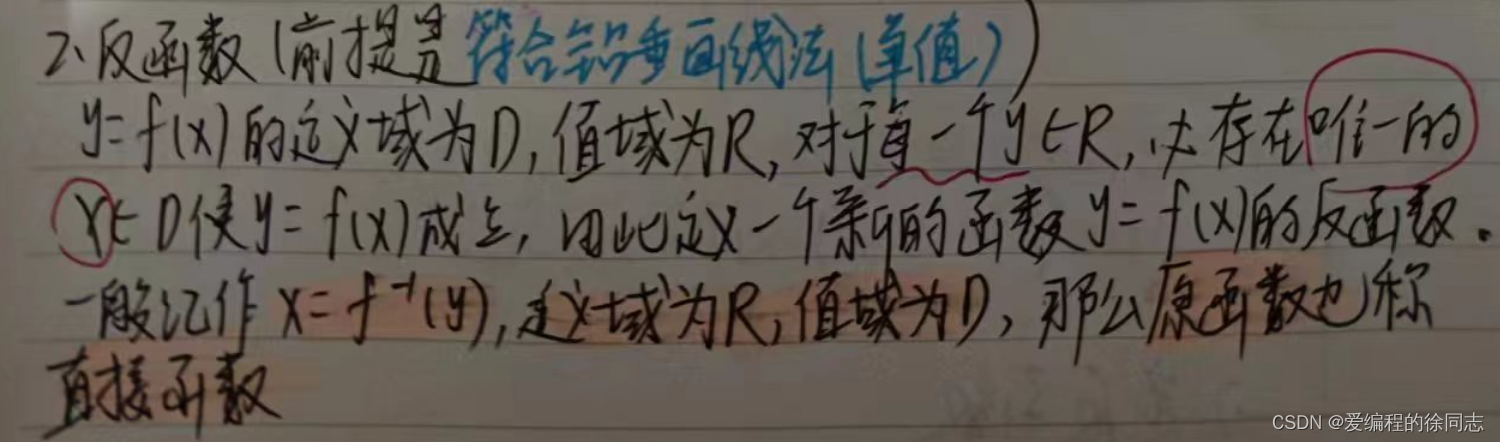 2、反函数(前提是符合铅垂画线法(单值))
y=f(x)的定义域为D,值域为R,对于每一个y∈R,必存在唯一的
x∈D使y=f(x)成立,由此定义一个新的函数y=f(x)的反函数.
一般记作x=f⁻¹(y),定义域为R,值域为D,那么原函数也称
直接函数
CSDN @爱编程的徐同志